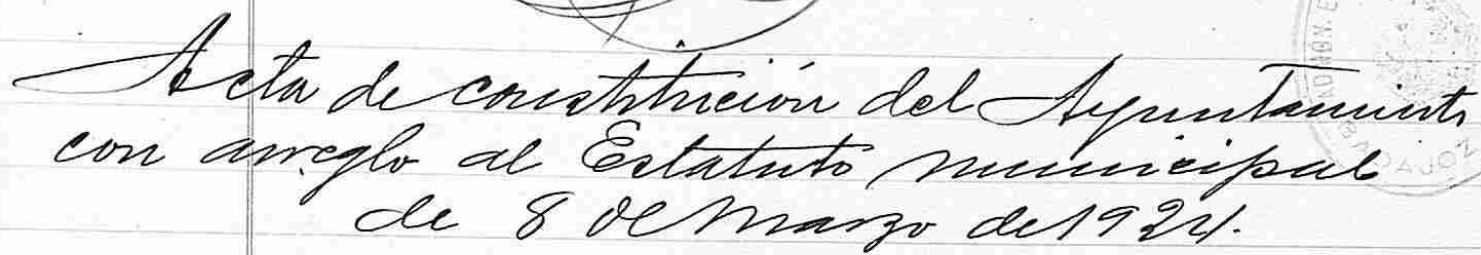 Acta de constitución del Ayuntamiento
con arreglo al Estatuto municipal
de 8 de Marzo de 1924.
BADAJOZ